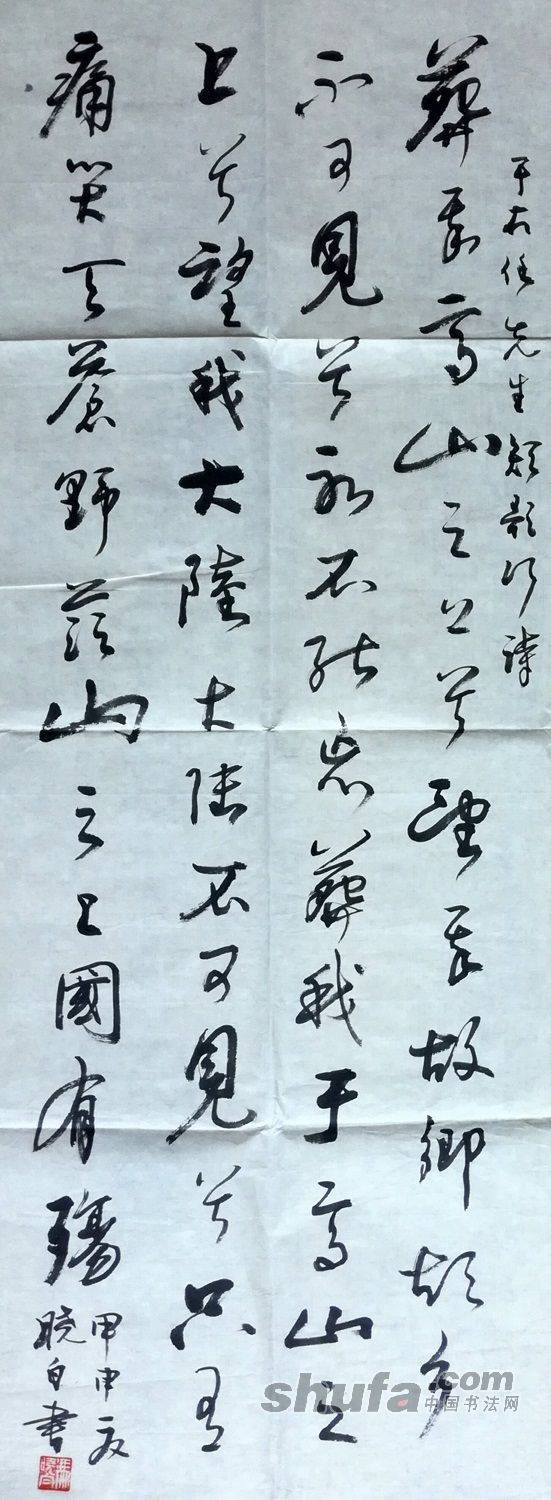 于右任先生诗
葬我高山之上兮望我故鄉故乡
不可見兮永不能忘葬我于高山之
上兮望我大陸大陸不可見兮只有
痛哭天蒼野茫山之上國有殤
甲申夏
晓白書
shufa.com
中国书法网